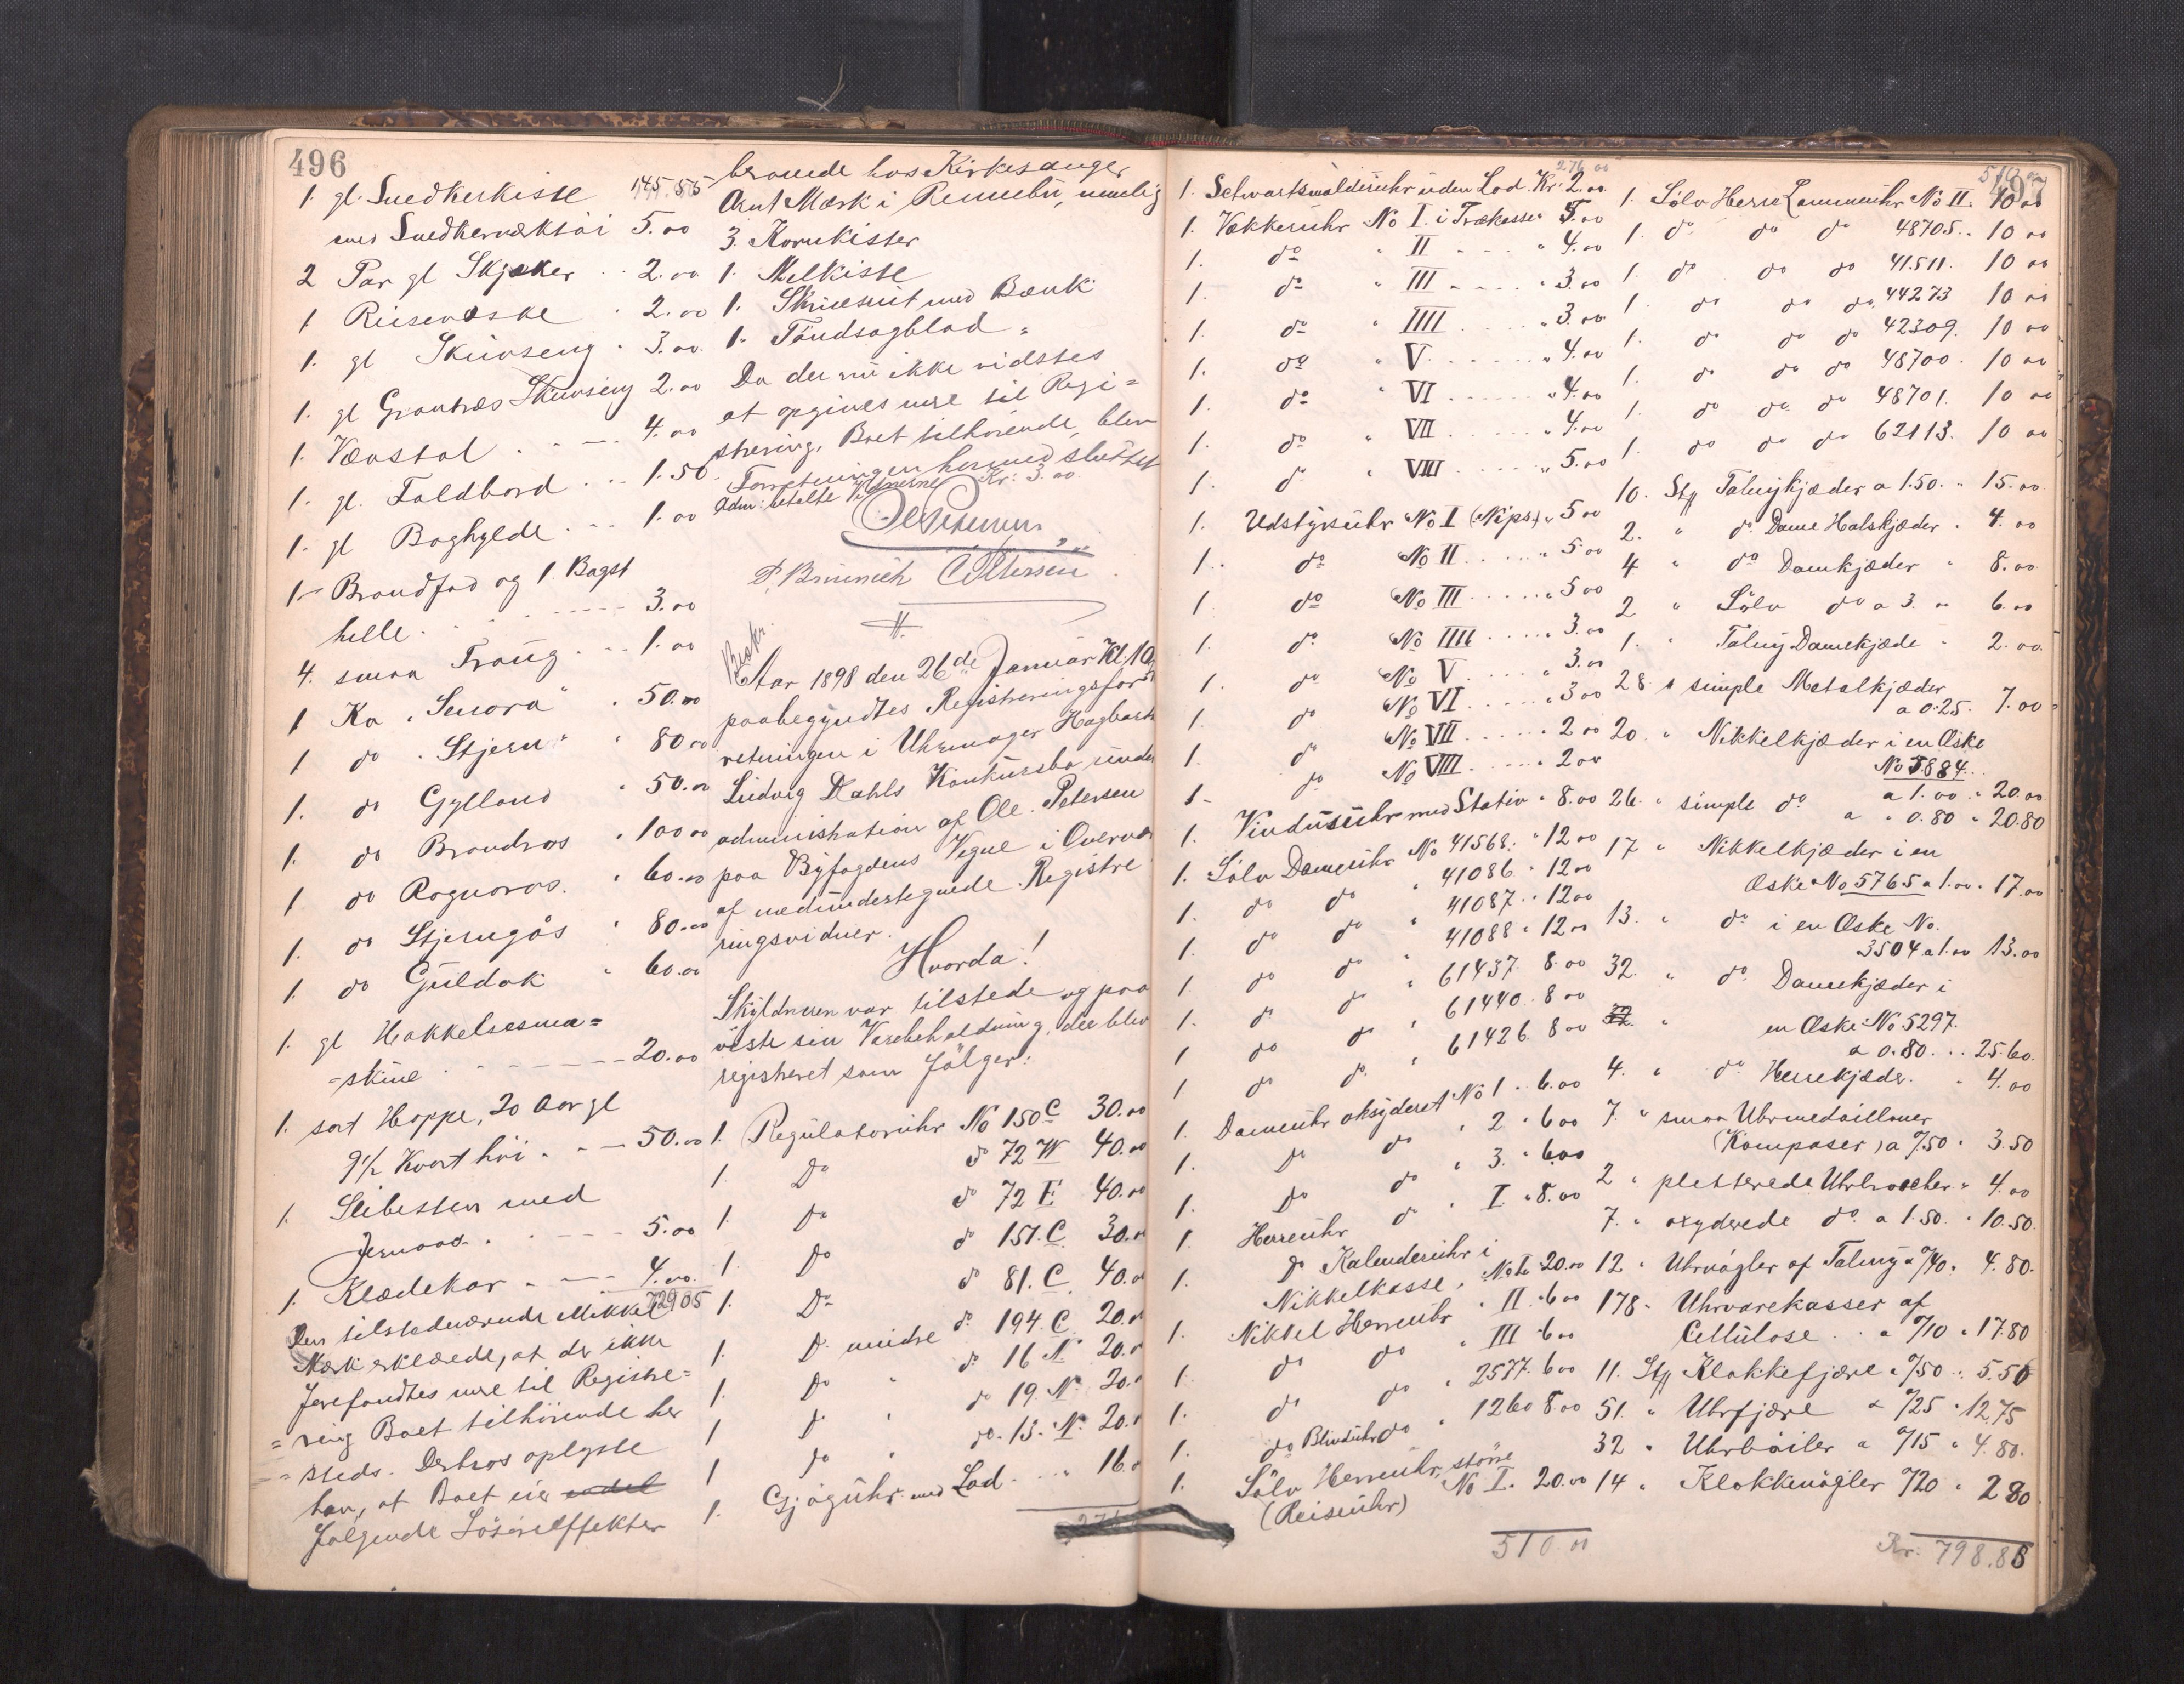 496
1. gl. Snedkerkiste 145.55
med Snedkerværktöi 5.00
2 Par gl Skjæker .. 2.00
1 Reisevæske . 2.00
1. gl Skuvseng . 3.00
1. gl Grantræs Skuvseng 2.00
1. Vævstol . . — . 4.00
1. gl. Foldbord . . . 1.50
1. gl Boghylde . . . 1.00
1 Brandfad og 1 Bagst
helle . . . . . . . 3.00
4. smaa Traug . . . 1.00
1 Ko „Senora" . 50.00
1 do „Stjern" " 80.00
1. do Gylland " 50.00
1. do Brandros " 100.00
1 do Rognoros. " 60.00
1. do Stjerngås " 80.00
1. do Guldok " 60.00
1. gl Hakkelsesma=
=skine . . . . . . 20.00
1. sort Hoppe, 20 Aar gl
9½ Kvart höi . . — 50.00
1. Slibesten med
. . . . 5.00
1. Klædekar . . — 4.00
Den tilstedeværende Mikkel 729.05
Mærk erklærede, at der ikke
forefandtes mere til Registre=
=ring Boet tilhörende her
=steds. Derhos oplyste
han, at Boet eier endel
følgende Lösöreeffekter
beroende hos Kirkesanger
Arnt Mærk i Rennebu, nemlig
3. Kornkister
1. Melkiste
1. Skruestit med Bænk
1. Töndsagblad.
Da der nu ikke vidstes
at opgives mere til Regi=
strering, Boet tilhörende, blev
Forretningen hermed sluttet
Adm: betalte Vidnerne Kr: 3.00
Ole Petersen
P. Brünnich C. Petersen
Beskr.
Aar 1898 den 26de Januar Kl. 10
paabegyndtes Registreringsfor
retningen i Uhrmager Hagbart
Ludvig Dahls Konkursbo under
administration af Ole Petersen
paa Byfogdens Vegne i Overvær
af nedundertegnede Registre
ringsvidner.
Hvorda!
Skyldneren var tilstede og paa
viste sin Varebeholdning, der blev
registreret som følger:
1. Regulatoruhr No 150 C 30.00
1. Do do 72 W 40.00
1. Do do 72 E 40.00
1. Do do 151. C. 30.00
1. Do do 81. C. 40.00
1. Do mindre do 194. C. 20.00
1. Do " do 16 N. 20.00
1 Do " do 19. N. 20.00
1 Do " do. 13. N. 20.00
1. Gjøguhr med Lod . . . 16.00
276
497
276 00
1. Schwartswalderuhr uden Lod. Kr: 2.00
1. Vækkeruhr No I. i Trækasse " 5.00
1. do " II . . . . " 4.00
1. do " III . . . . " 3.00
1. do " IIII . . . . " 3.00
1. do " V . . . . . " 4.00
1. do " VI . . . . . " 4.00
1. do " VII . . . . . " 4.00
1. do " VIII . . . . . " 5.00
1. Udstyrsuhr No I (Nips) " 5.00
1. do No II . . . . " 5.00
1 do No III . . . . " 5.00
1. do No IIII . . . . " 3.00
1. do No V . . . . " 3.00
1. do No VI . . . . " 3.00
1. do No VII . . . . " 2.00
1 do No VIII . . . . " 2.00
1. Vinduesuhr med Stativ " 8.00
1. Sölv Dameuhr No 41568. " 12.00
1. do do " 41086 " 12.00
1. do do " 41087 " 12.00
1. do do " 41088 " 12.00
1. do do " 61437 8.00
1 do do " 61440 . 8.00
1 do do " 61426. 8.00
1. Dameuhr oksyderet No 1 . . 6.00
1. Do do " 2 " 6.00
1. Do do " 3. " 6.00
1. Herreuhr do " I. " 8.00
1. do Kalenderuhr i
Nikkelkasse " No I " 20.00
1. Nikkel Herreuhr " II " 6.00
1. do do " III " 6.00
1. do do " 2577. 6.00
1. do Blinduhr do " 1260 8.00
1. Sölv Herreuhr, större
(Reiseuhr) No I. 20.00
510.00
510.00
1. Sölv Herre Lommeuhr No II. 10.00
1. do do do 48705. . 10 00
1. do do do 41511. 10 00
1. do do do. 44273 10 00
1. do do do 42309. 10 00
1. do do do 48700. 10 00
1. do do do 48701. 10 00
1. do do do 62113. 10 00
10. Stk Talmykjæder a 1.50. " 15.00
2. " do Dame Halskjæder . 4.00
4 " do Damekjæder " 8.00
2 " Sölv do a 3. " 6.00
1. " Talmy Damekjæde " 2.00
28 " simple Metalkjæder
a 0.25. 7.00
20. " Nikkelkjæder i en Æske
No 5884.
a 1.00 . 20.00
26. " simple do a " 0.80 " 20.80
17 " Nikkelkjæder i en
Æske No 5765 a 1.00 . 17.00
13. " do i en Æske No.
3504 a 1.00 13.00
32. " do Damekjæder i
en Æske No 5297.
a 0.80. . . 25.60.
4. " do Herrekjæder. " 4.00
7. " smaa Uhrmedailloner
(Kompaser) a 0/50 . 3.50
2 " pletterede Uhrbrocher " 4.00
7. " oxyderede do a 1.50. " 10.50.
12 " Uhrnögler af Talmy a 0/40. 4.80.
178 " Uhrvarekasser af
Cellulose . . a 0/10 . 17.80
11. Stk Klokkefjære a 0/50 . 5.50
51. " Uhrfjære a 0/25 . 12.75
32 " Uhrböiler a 0/15 " 4.80.
14 " Klokkenögler 0/20 . 2.80
Kr: 798.85